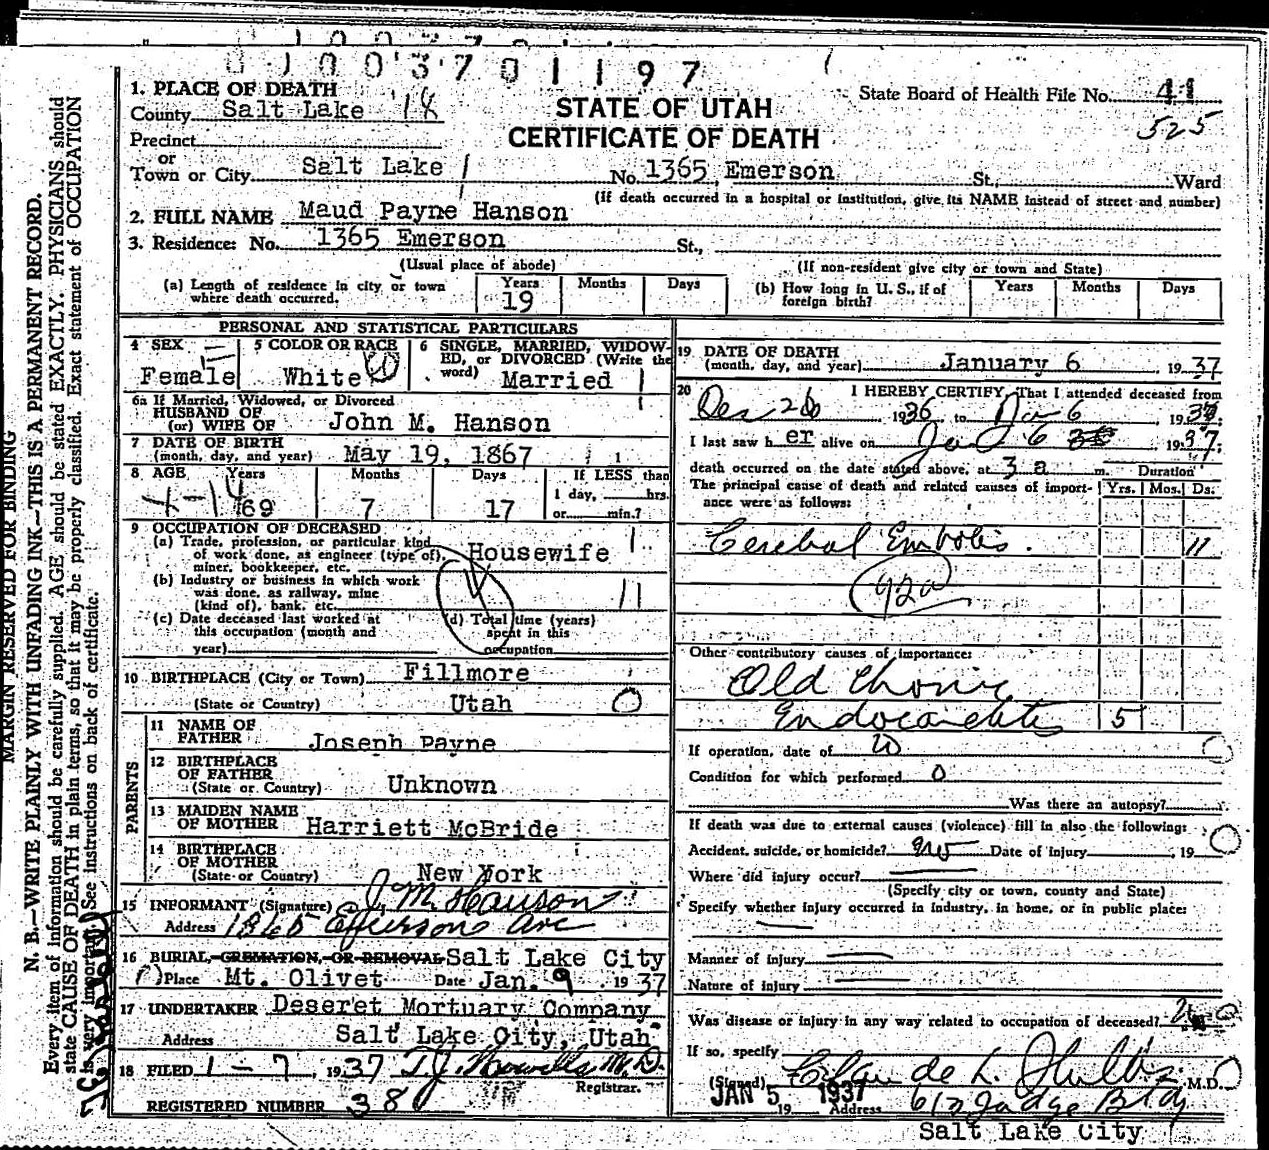 0 1 0 0 3 7 0 1 1 9 7
State Board of Health File No. 41
525
STATE OF UTAH
CERTIFICATE OF DEATH
1. PLACE OF DEATH
County Salt Lake 18
Precinct
or
Town or City Salt Lake No. 1365 Emerson St., Ward
(If death occurred in a hospital or institution, give its NAME instead of street and number)
2. FULL NAME Maud Payne Hanson
3. Residence: No. 1365 Emerson St.,
(Usual place of abode) (If non-resident give city or town and State)
(a) Length of residence in city or town where death occurred. Years 19 Months Days
(b) How long in U. S., if of foreign birth? Years Months Days
PERSONAL AND STATISTICAL PARTICULARS
4 SEX Female
5 COLOR OR RACE White
6 SINGLE, MARRIED, WIDOWED, or DIVORCED (Write the word) Married
6a If Married, Widowed, or Divorced
HUSBAND OF
(or) WIFE OF John M. Hanson
7 DATE OF BIRTH
(month, day, and year) May 19, 1867
8 AGE Years 69 Months 7 Days 17 If LESS than 1 day, hrs. or min.?
9 OCCUPATION OF DECEASED
(a) Trade, profession, or particular kind of work done, as engineer (type of), miner, bookkeeper, etc. Housewife
(b) Industry or business in which work was done, as railway, mine (kind of), bank, etc.
(c) Date deceased last worked at this occupation (month and year)
(d) Total time (years) spent in this occupation
10 BIRTHPLACE (City or Town) Fillmore
(State or Country) Utah
PARENTS
11 NAME OF FATHER Joseph Payne
12 BIRTHPLACE OF FATHER
(State or Country) Unknown
13 MAIDEN NAME OF MOTHER Harriett McBride
14 BIRTHPLACE OF MOTHER
(State or Country) New York
15 INFORMANT (Signature) J. M. Hanson
Address 1365 Emerson Ave
16 BURIAL, CREMATION, OR REMOVAL Salt Lake City
Place Mt. Olivet Date Jan. 9 1937
17 UNDERTAKER Deseret Mortuary Company
Address Salt Lake City, Utah
18 FILED 1-7, 1937 T.J. Howells M.D.
Registrar.
REGISTERED NUMBER 38
19 DATE OF DEATH
(month, day, and year) January 6, 1937
20 I HEREBY CERTIFY, That I attended deceased from
Dec 26 1936 to Jan 6 1937
I last saw her alive on Jan 6 1937
death occurred on the date stated above, at 3 a m. Duration
The principal cause of death and related causes of importance were as follows: Yrs. Mos. Ds.
Cerebal Embolis. 11
92a
Other contributory causes of importance:
Old Chronic
Endocarditis 5
If operation, date of
Condition for which performed 0
Was there an autopsy?
If death was due to external causes (violence) fill in also the following:
Accident, suicide, or homicide? Date of injury , 19
Where did injury occur?
(Specify city or town, county and State)
Specify whether injury occurred in industry, in home, or in public place:
Manner of injury
Nature of injury
Was disease or injury in any way related to occupation of deceased?
If so, specify
(Signed) Claude L. Shields M.D.
JAN 5 1937
19 Address 610 Judge Bldg
Salt Lake City
MARGIN RESERVED FOR BINDING
N. B.—WRITE PLAINLY WITH UNFADING INK—THIS IS A PERMANENT RECORD.
Every item of information should be carefully supplied. AGE should be stated EXACTLY. PHYSICIANS should
state CAUSE OF DEATH in plain terms, so that it may be properly classified. Exact statement of OCCUPATION
is very important. See instructions on back of certificate.